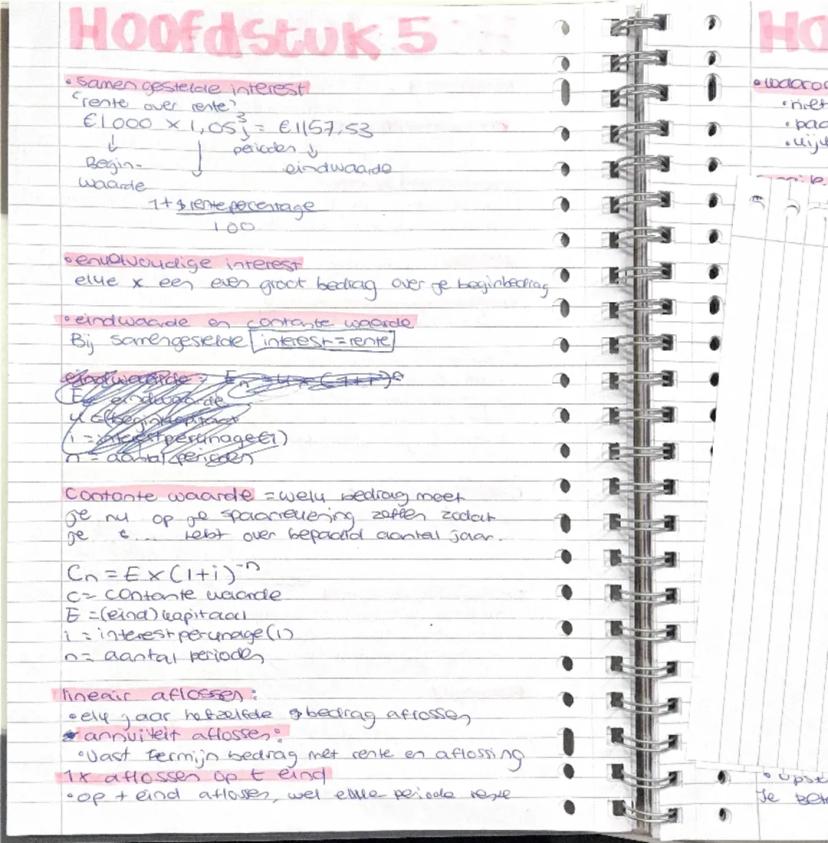 Hoofdstuk 5
• samengestelde interest
"rente over rente"
€1000 × 1,05³ = €1157,53
↓ ↓ perioden ↓
Begin- eindwaarde
waarde
1 + rentepercentage
100
• enkelvoudige interest
elke x een even groot bedrag over je beginbedrag
• eindwaarde en contante waarde
Bij samengestelde interest = rente
eindwaarde: En = K × (1+i)ⁿ
E = eindwaarde
K = (begin)kapitaal
i = interestperunage (i)
n = aantal perioden
Contante waarde = welk bedrag moet
je nu op je spaarrekening zetten zodat
je €... hebt over bepaald aantal jaar.
Cn = E × (1+i)⁻ⁿ
C = contante waarde
E = (eind) kapitaal
i = interestperunage (i)
n = aantal perioden
lineair aflossen:
• elk jaar hetzelfde bedrag aflossen
annuiteit aflossen:
• Vast termijn bedrag met rente en aflossing
1x aflossen op t eind
• op t eind aflossen, wel elke periode rente
Ho
• waaro
• niet
je bet